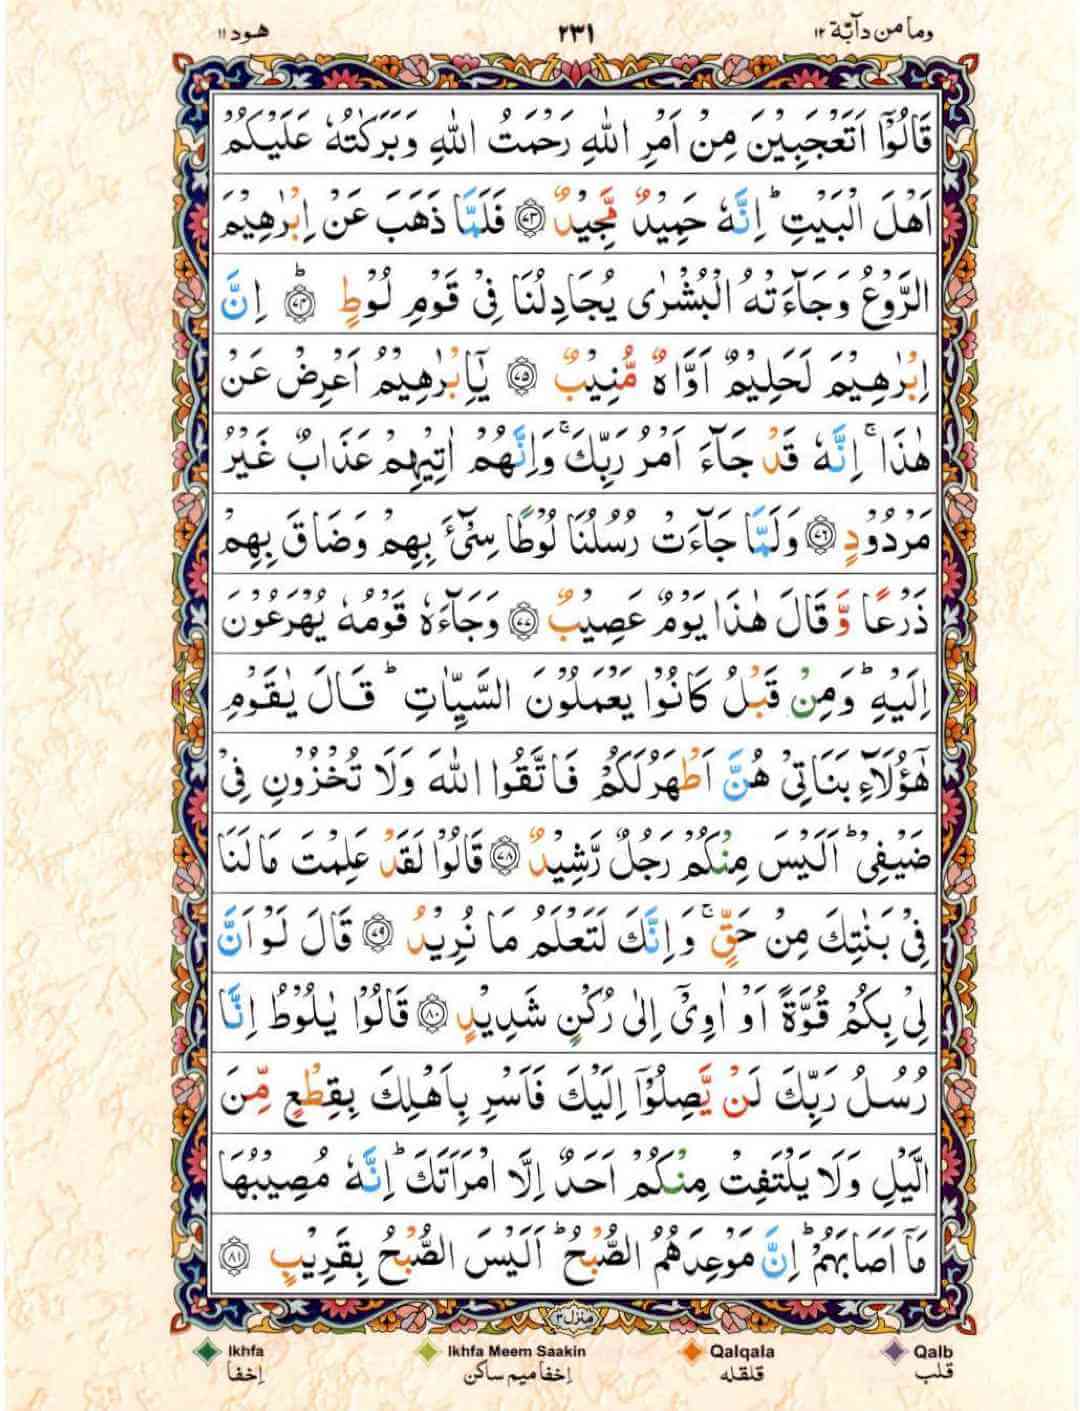 وما من دآبّة ۱۲ ۲۳۱ هود ۱۱
قَالُوْۤا اَتَعْجَبِيْنَ مِنْ اَمْرِ اللّٰهِ رَحْمَتُ اللّٰهِ وَبَرَكٰتُهٗ عَلَيْكُمْ
اَهْلَ الْبَيْتِ ؕ اِنَّهٗ حَمِيْدٌ مَّجِيْدٌ ﴿۷۳﴾ فَلَمَّا ذَهَبَ عَنْ اِبْرٰهِيْمَ
الرَّوْعُ وَجَآءَتْهُ الْبُشْرٰى يُجَادِلُنَا فِيْ قَوْمِ لُوْطٍ ﴿۷۴﴾ ؕ اِنَّ
اِبْرٰهِيْمَ لَحَلِيْمٌ اَوَّاهٌ مُّنِيْبٌ ﴿۷۵﴾ يٰۤاِبْرٰهِيْمُ اَعْرِضْ عَنْ
هٰذَا ۚ اِنَّهٗ قَدْ جَآءَ اَمْرُ رَبِّكَ ۚ وَاِنَّهُمْ اٰتِيْهِمْ عَذَابٌ غَيْرُ
مَرْدُوْدٍ ﴿۷۶﴾ وَلَمَّا جَآءَتْ رُسُلُنَا لُوْطًا سِيْٓءَ بِهِمْ وَضَاقَ بِهِمْ
ذَرْعًا وَّقَالَ هٰذَا يَوْمٌ عَصِيْبٌ ﴿۷۷﴾ وَجَآءَهٗ قَوْمُهٗ يُهْرَعُوْنَ
اِلَيْهِ ؕ وَمِنْ قَبْلُ كَانُوْا يَعْمَلُوْنَ السَّيِّاٰتِ ؕ قَالَ يٰقَوْمِ
هٰۤؤُلَآءِ بَنَاتِيْ هُنَّ اَطْهَرُ لَكُمْ فَاتَّقُوا اللّٰهَ وَلَا تُخْزُوْنِ فِيْ
ضَيْفِيْ ؕ اَلَيْسَ مِنْكُمْ رَجُلٌ رَّشِيْدٌ ﴿۷۸﴾ قَالُوْا لَقَدْ عَلِمْتَ مَا لَنَا
فِيْ بَنٰتِكَ مِنْ حَقٍّ ۚ وَاِنَّكَ لَتَعْلَمُ مَا نُرِيْدُ ﴿۷۹﴾ قَالَ لَوْ اَنَّ
لِيْ بِكُمْ قُوَّةً اَوْ اٰوِيْۤ اِلٰى رُكْنٍ شَدِيْدٍ ﴿۸۰﴾ قَالُوْا يٰلُوْطُ اِنَّا
رُسُلُ رَبِّكَ لَنْ يَّصِلُوْۤا اِلَيْكَ فَاَسْرِ بِاَهْلِكَ بِقِطْعٍ مِّنَ
الَّيْلِ وَلَا يَلْتَفِتْ مِنْكُمْ اَحَدٌ اِلَّا امْرَاَتَكَ ؕ اِنَّهٗ مُصِيْبُهَا
مَاۤ اَصَابَهُمْ ؕ اِنَّ مَوْعِدَهُمُ الصُّبْحُ ؕ اَلَيْسَ الصُّبْحُ بِقَرِيْبٍ ﴿۸۱﴾
منزل ۳
Ikhfa Ikhfa Meem Saakin Qalqala Qalb
إخفا إخفا ميم ساكن قلقله قلب